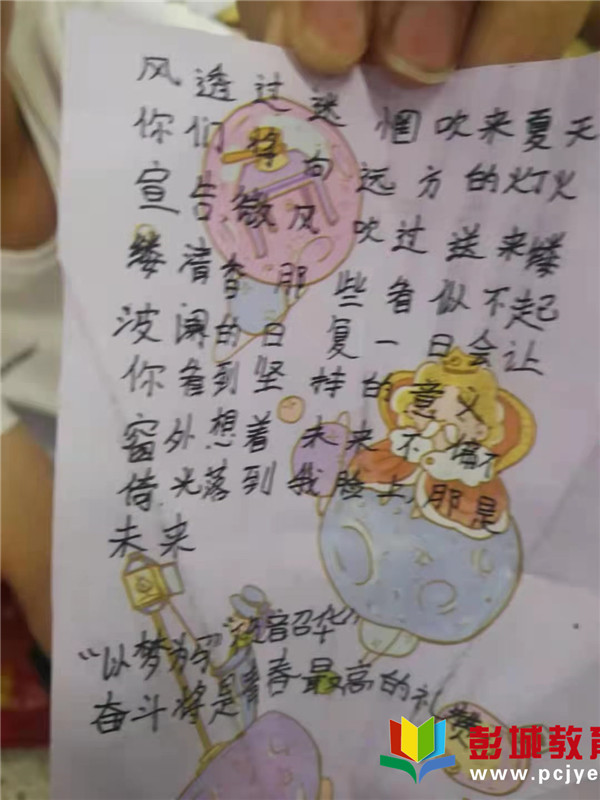 风透过迷惘吹来夏天
你们将向远方的灯火
宣告微风吹过送来缕
缕清香那些看似不起
波澜的日复一日会让
你看到坚持的意义
窗外想着未来不
倚光落到我脸上,那是
未来
“以梦为马”“韶华”
奋斗将是青春最高的礼赞
彭城教育
www.pcjye